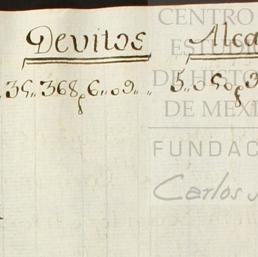 Devitos Alca
35,,368,,6,,09,,, 5,,050
CENTRO
ESTUDI
DE HISTOR
DE MEXI
FUNDAC
Carlos